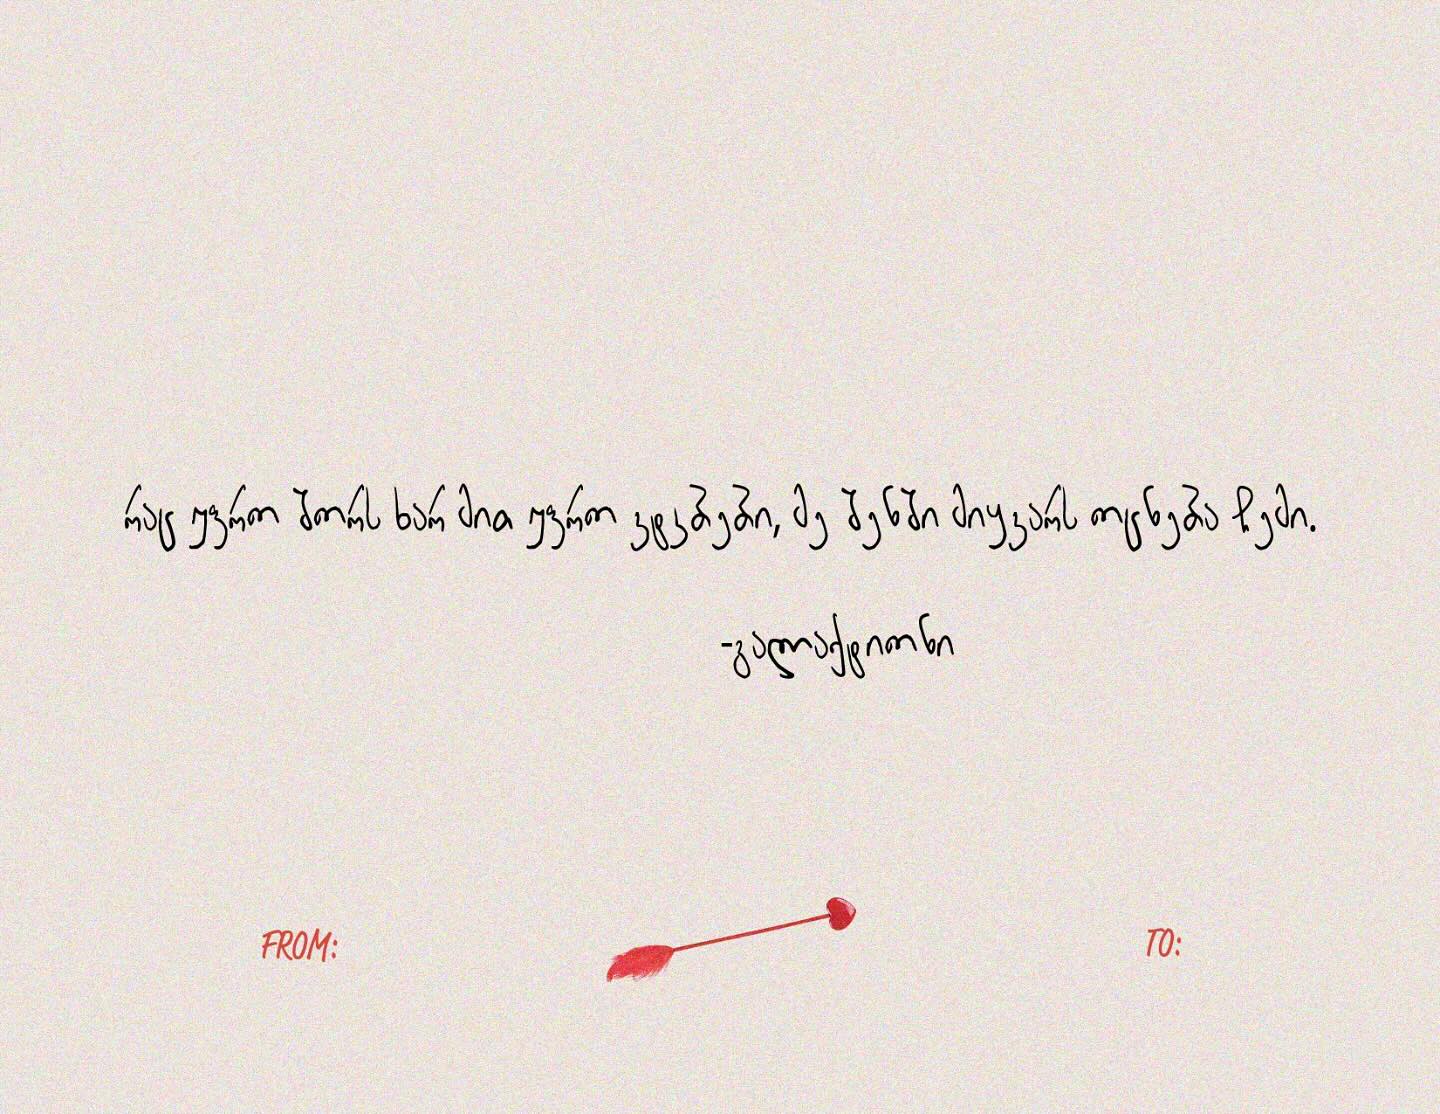 რაც უფრო შორს ხარ მით უფრო ვტკბები, მე შენში მიყვარს ოცნება ჩემი.
-გალაქტიონი
FROM:
TO: